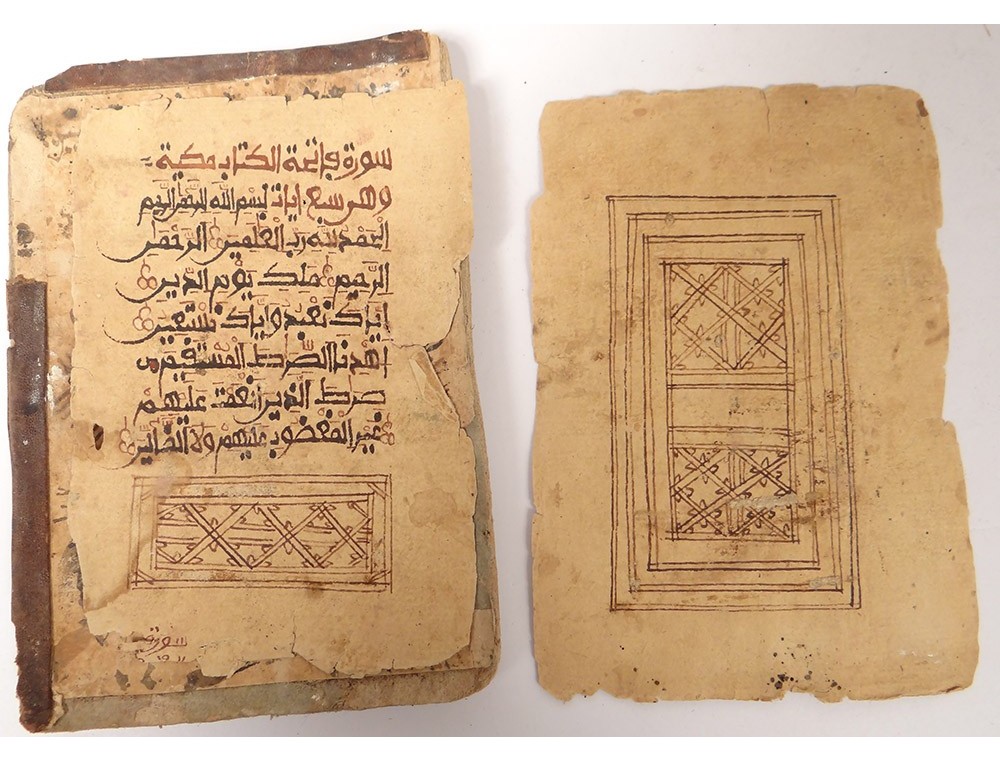 سورة فاتحة الكتاب مكية
وهي سبع ايات بسم الله الرحمن الرحيم
الحمد لله رب العلمين الرحمن
الرحيم ملك يوم الدين
اياك نعبد واياك نستعين
اهدنا الصرط المستقيم
صرط الذين أنعمت عليهم
غير المغضوب عليهم ولا الضالين
سورة